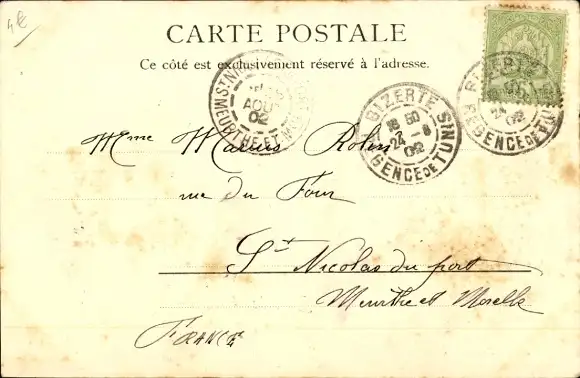 4€
CARTE POSTALE
Ce côté est exclusivement réservé à l'adresse.
AOUT
02
MEURTHE ET M
BIZERTE
18 50
24 -8
02
REGENCE DE TUNIS
BIZERTE
24
02
REGENCE DE TU
Mme Marius Robin
rue du Four
St Nicolas du port
Meurthe et Moselle
FRANCE